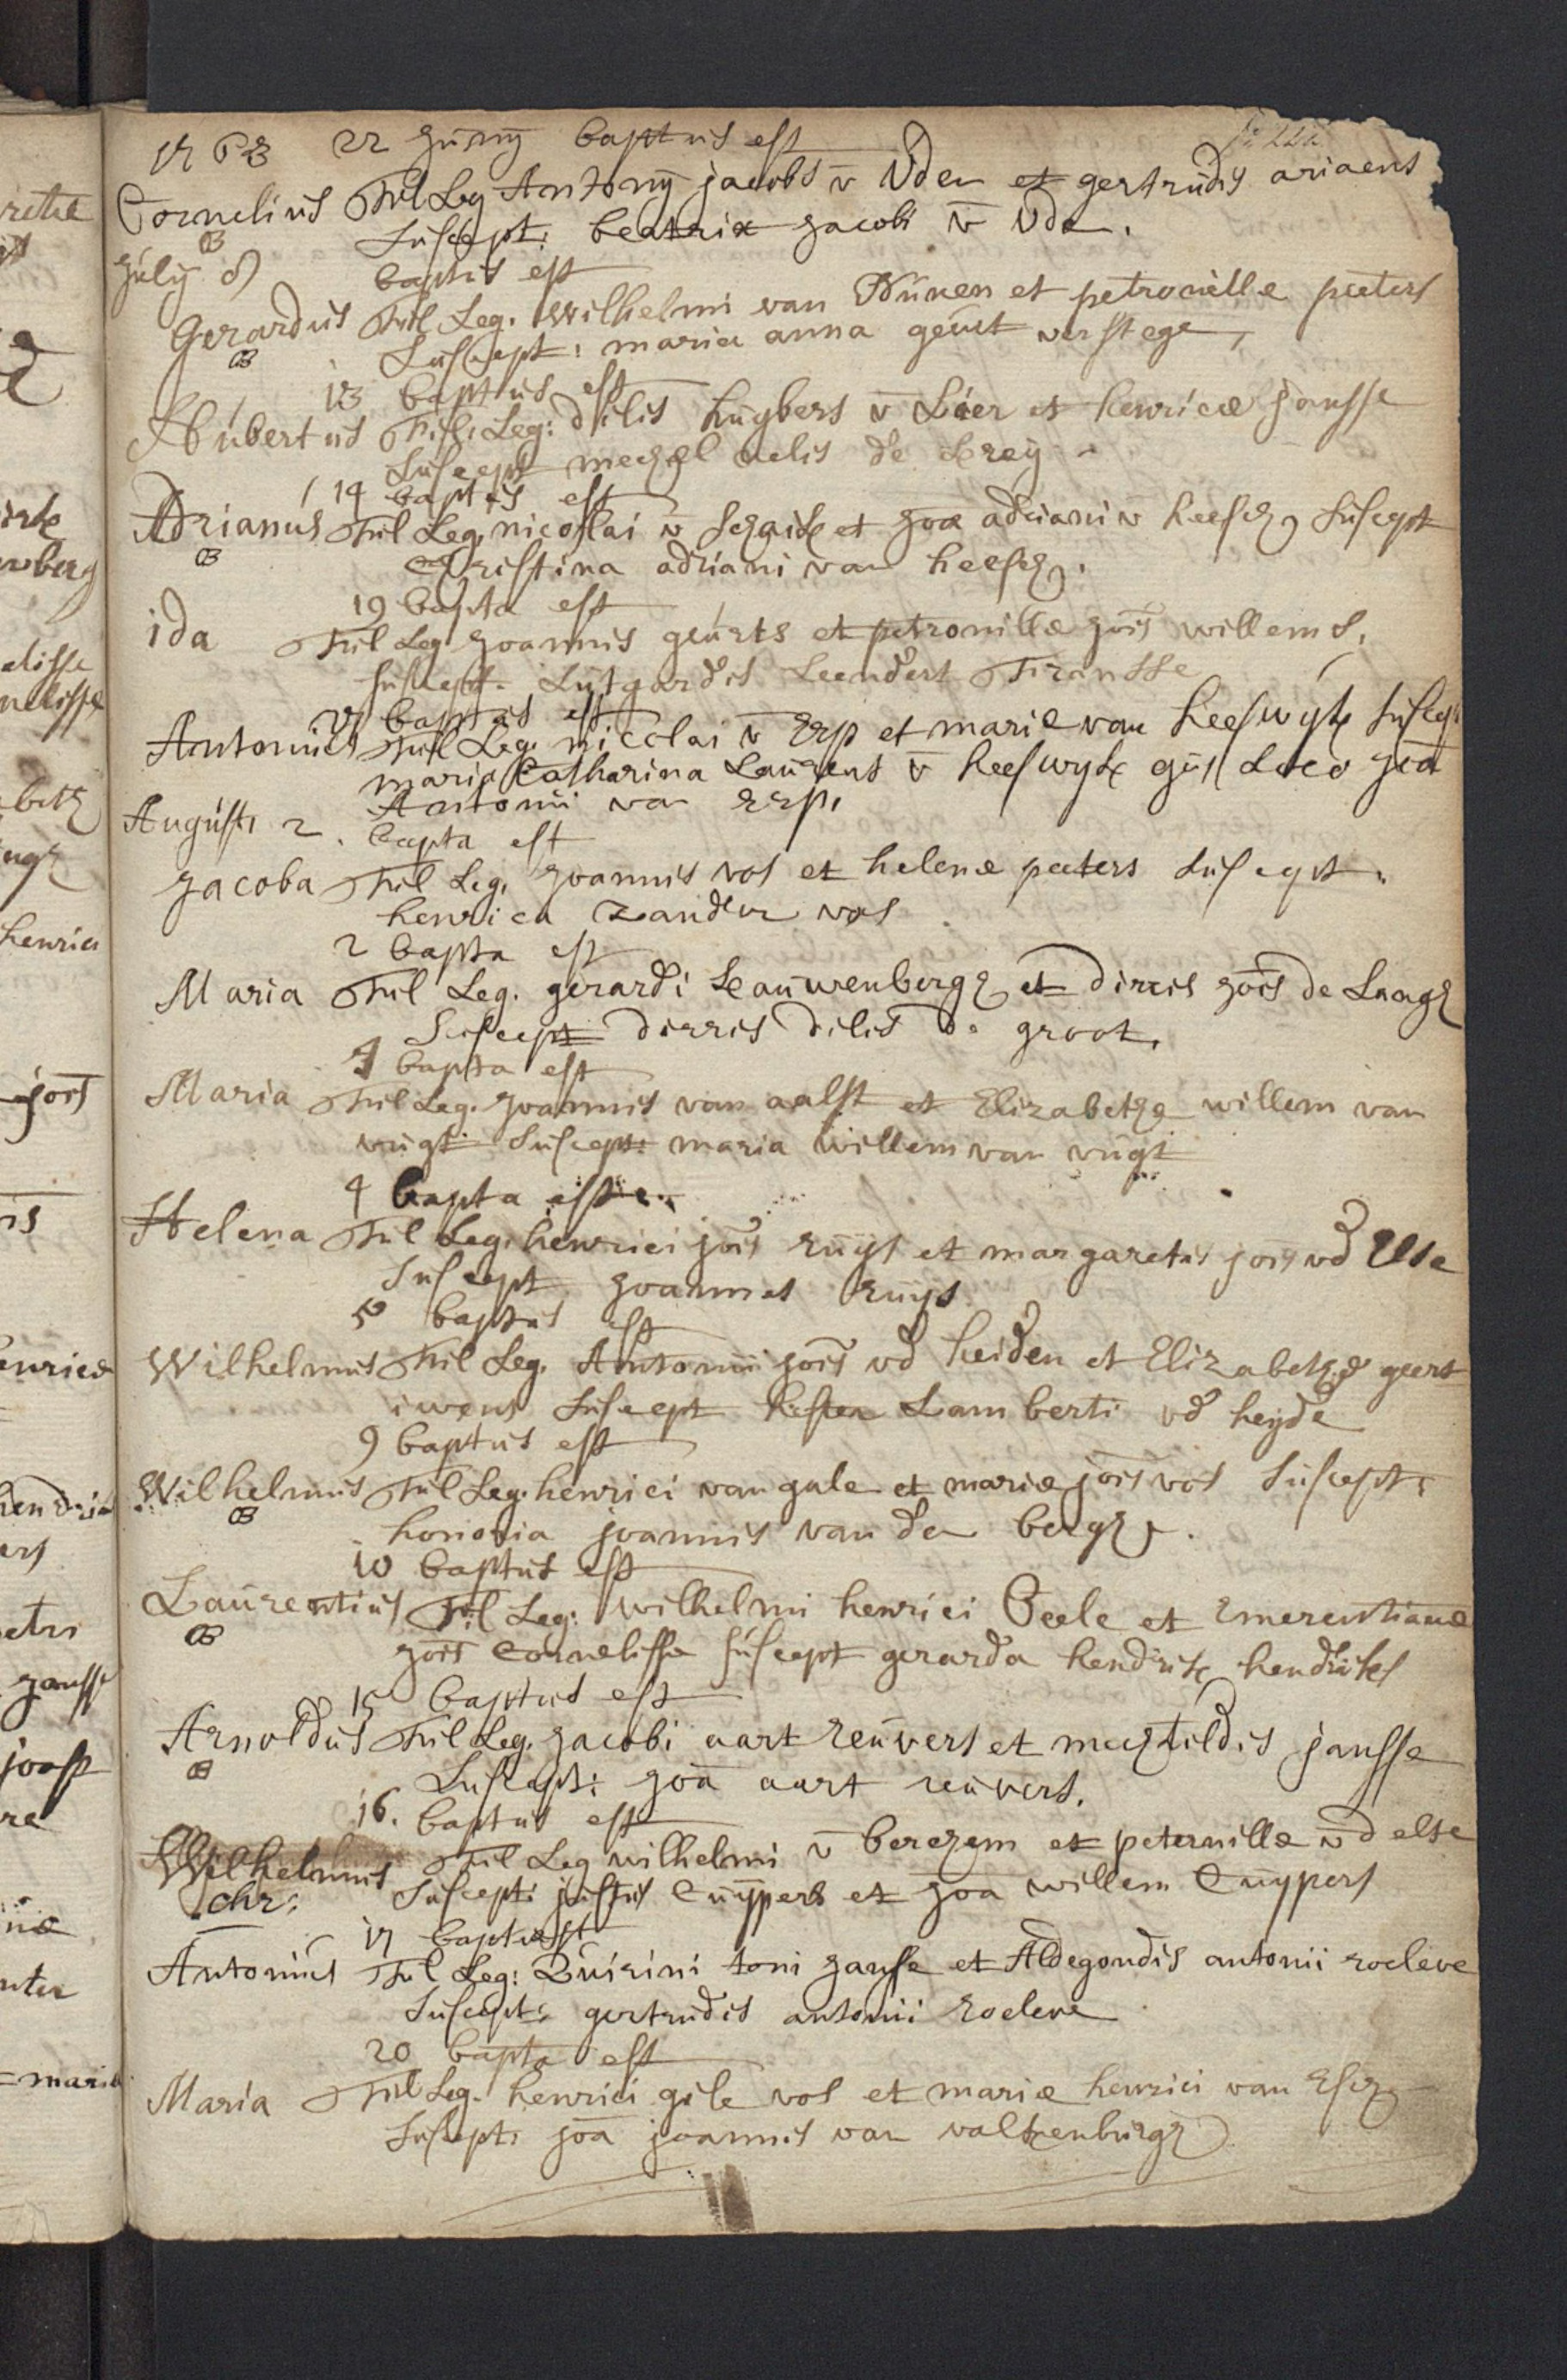 22 Junij baptus est
Cornelius Fil Leg Antonij jacobs v Uden et gertrudis ariaens
Suscept: beatrix Jacobi v Ude.
July 8 baptus est
Gerardus Fil Leg. Wilhelmi van Nunen et petronillæ peeters
Suscept: maria anna geurt verstege
13 baptus est
Hubertus Fil: Leg: dilis huybers v Lier et henricæ jansse
Suscept mechel nelis de
14 baptus est
Adrianus Fil Leg. nicolai v Schaik et Joæ adriani v heesch, suscept
Christina adriani van heesch.
19 bapta est
ida Fil Leg. Joannis geurts et petronillæ Jois willems.
suscept. Lutgardis Leendert Fransse
baptus est
Antonius Fil Leg. nicolai v Erp et mariæ van heeswyk suscept
maria Catharina Laurens v heeswyk ejus Loco Joa
Antonii van Erp.
August 2. bapta est
Jacoba Fil Leg. Joannis vos et helenæ peeters suscept.
henrica zander vos
2 bapta est
Maria Fil Leg. gerardi kauwenbergh et dircis Jois de Laagh
Suscept dirris dilis de groot.
bapta est
Maria Fil Leg. Joannis van aalst et Elizabethæ willem van
vugt. Suscept: maria willem van vugt
4 bapta est
Helena Fil Leg. henrici jois ruys et margaretæ jois vd Else
Suscept Joannes ruys
5 baptus est
Wilhelmus Fil Leg. Antonii jois vd heiden et Elizabethæ geert
iwens suscept hester Lamberti vd heyde
9 baptus est
Wilhelmus Fil Leg. henrici van gale et mariæ jois vos suscept:
honoria joannis van den bergh.
10 baptus est
Laurentius Fil Leg: wilhelmi henrici Peele et Emerentianæ
Jois Cornelisse suscept gerarda hendrik hendriks
15 baptus est
Arnoldus Fil Leg. Jacobi aart reuvers et mechtildis jansse
Suscept: Joa aart reuvers.
16. baptus est
Wilhelmus Fil Leg wilhelmi v berchem et peternillæ vd else
chr: Suscept: justus Cuypers et Joa willem Cuypers
17 baptus est
Antonius Fil Leg: Quirini toni Janse et Aldegondis antonii roeleve
Suscept: gertrudis antonii roeleve
20 bapta est
Maria Fil Leg. henrici gile vos et mariæ henrici van Esch
Suscept: joa joannis van valkenburgh